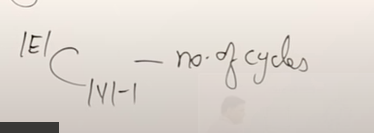 |E| C |V|-1 — no. of cycles